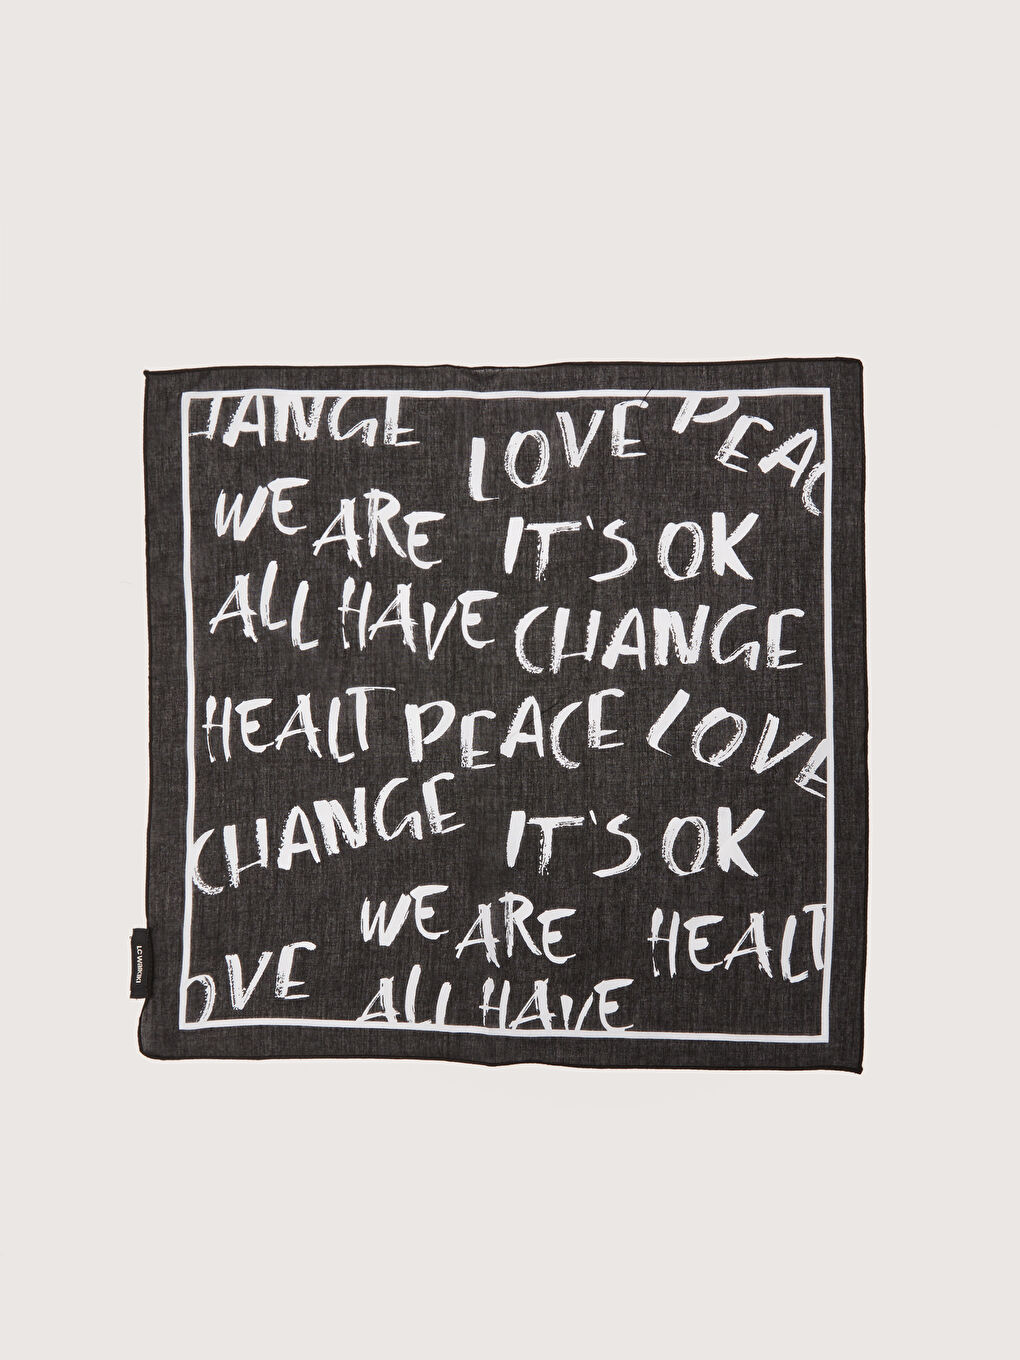 HANGE LOVE PEAC
WE ARE IT'S OK
ALL HAVE CHANGE
HEALT PEACE LOVE
CHANGE IT'S OK
WE ARE HEALT
OVE ALL HAVE
LC WAIKIKI